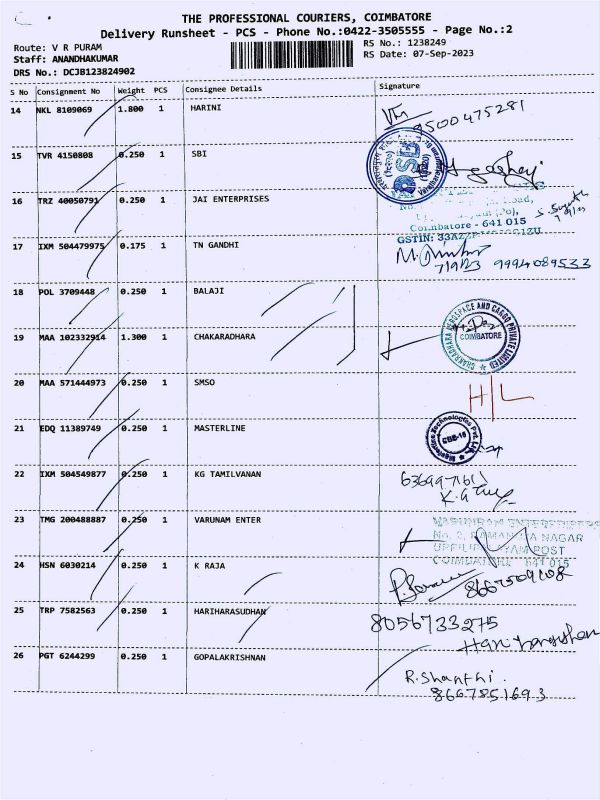 THE PROFESSIONAL COURIERS, COIMBATORE
Delivery Runsheet - PCS - Phone No.:0422-3505555 - Page No.:2
Route: V R PURAM
RS No.: 1238249
Staff: ANANDHAKUMAR
RS Date: 07-Sep-2023
DRS No.: DCJB123824902
S No Consignment No Weight PCS Consignee Details Signature
14 NKL 8109069 1.800 1 HARINI
9500475281
15 TVR 4150808 0.250 1 SBI
16 TRZ 40050791 0.250 1 JAI ENTERPRISES
Coimbatore - 641 015
GSTIN:
17 IXM 504479975 0.175 1 TN GANDHI
7/9/23 9994089533
18 POL 3709448 0.250 1 BALAJI
19 MAA 102332914 1.300 1 CHAKARADHARA
CHAKRADHARA AEROSPACE AND CARGO PRIVATE LIMITED
COIMBATORE
20 MAA 571444973 0.250 1 SMSO
H/L
21 EDQ 11389749 0.250 1 MASTERLINE
Technologies Pvt. Ltd.
CBE-15
22 IXM 504549877 0.250 1 KG TAMILVANAN
6369971611
23 TMG 200488887 0.250 1 VARUNAM ENTER
No. 2, RAMANUJA NAGAR
POST
COIMBATORE 641 015
24 HSN 6030214 0.250 1 K RAJA
25 TRP 7582563 0.250 1 HARIHARASUDHAN
8056733275
26 PGT 6244299 0.250 1 GOPALAKRISHNAN
R. Shanthi.
8667851693